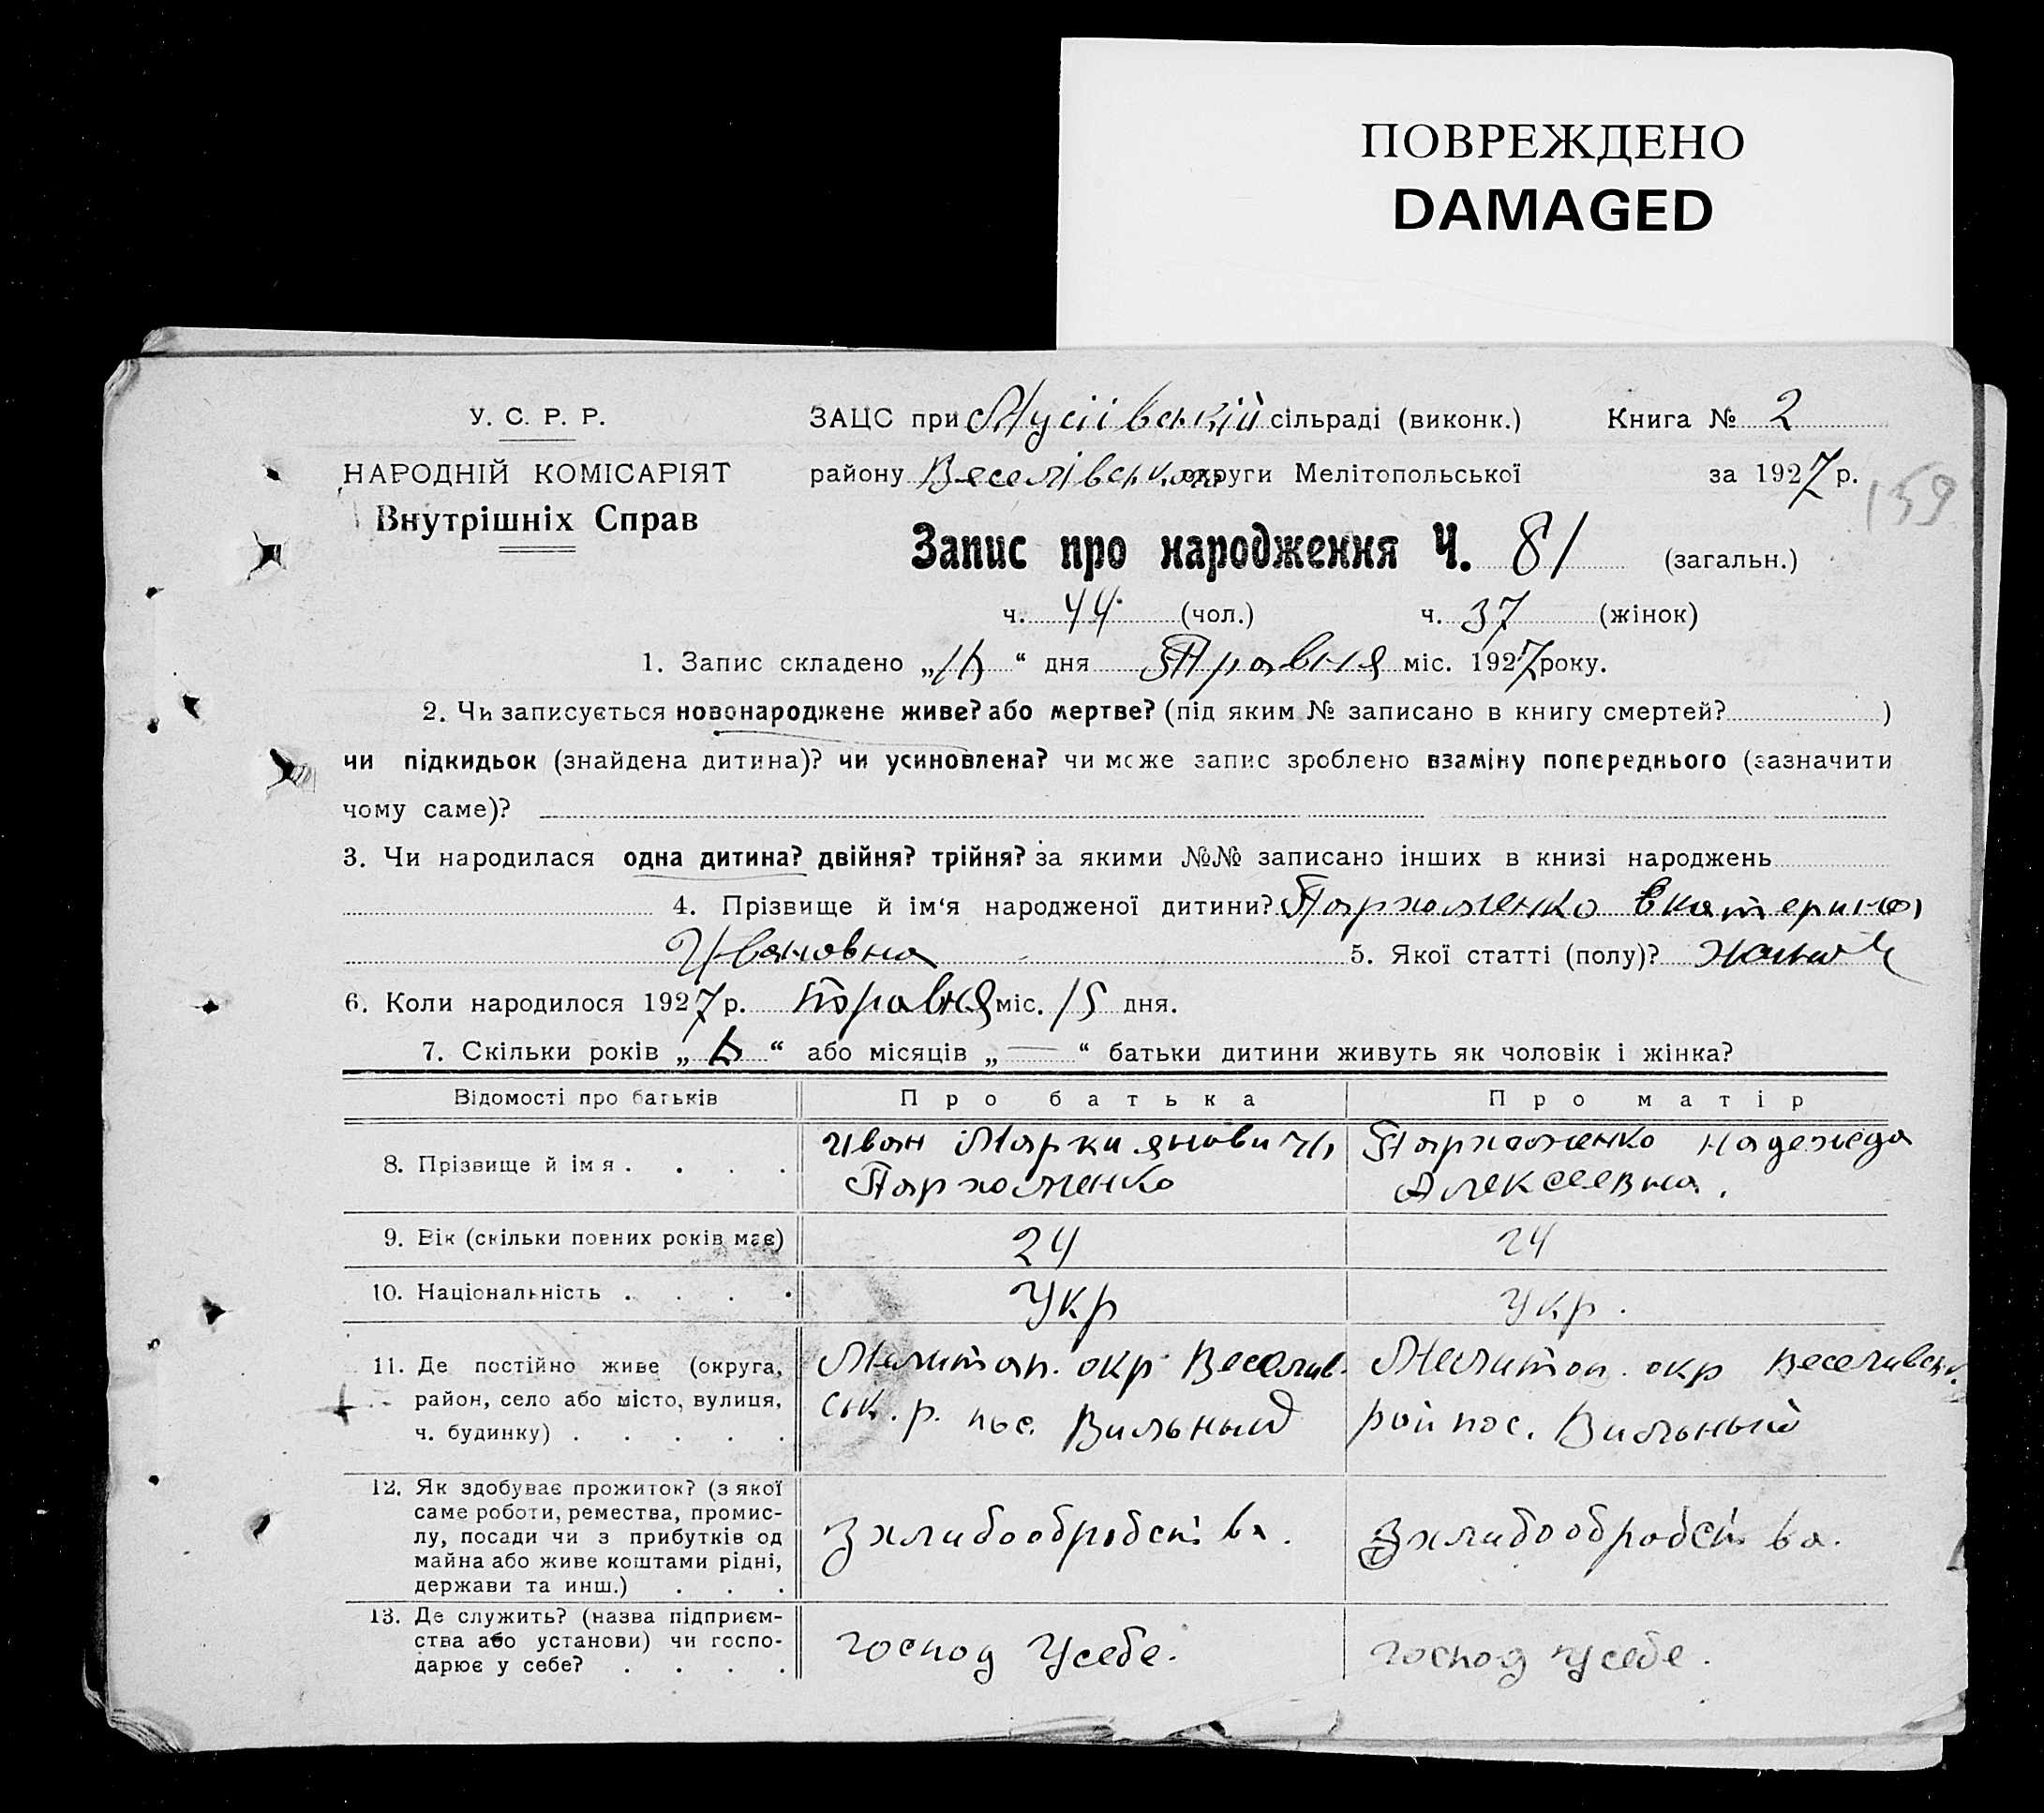 ПОВРЕЖДЕНО
DAMAGED
У. С. Р. Р.
ЗАЦС при Мусіївській сільраді (виконк.) Книга № 2
НАРОДНІЙ КОМІСАРІЯТ
району Веселівського округи Мелітопольської за 1927 р.
159
Внутрішніх Справ
Запис про народження Ч. 81 (загальн.)
ч. 44 (чол.) ч. 37 (жінок)
1. Запис складено „ “ дня Травня міс. 1927 року.
2. Чи записується новонароджене живе? або мертве? (під яким № записано в книгу смертей? )
чи підкидьок (знайдена дитина)? чи усиновлена? чи може запис зроблено взаміну попереднього (зазначити
чому саме)?
3. Чи народилася одна дитина? двійня? трійня? за якими №№ записано інших в книзі народжень
4. Прізвище й ім‘я народженої дитини? Пархоменко Екатерина
Ивановна 5. Якої статті (полу)?
6. Коли народилося 1927 р. Травня міс. 15 дня.
7. Скільки років „ “ або місяців „ — “ батьки дитини живуть як чоловік і жінка?
Відомості про батьків Про батька Про матір
8. Прізвище й імя . . . . Иван Маркиянович Пархоменко Надежда
Пархоменко Алексеевна.
9. Вік (скільки повних років має) 24 24
10. Національність . . . . Укр Укр.
11. Де постійно живе (округа, Мелитоп. окр Веселив- Мелитоп. окр Веселивськ.
район, село або місто, вулиця, ськ. р. пос. Вильный рай пос. Вильный
ч. будинку) . . . . .
12. Як здобуває прожиток? (з якої
саме роботи, ремества, промис-
лу, посади чи з прибутків од З хлибообробства. З хлибообробства.
майна або живе коштами рідні,
держави та инш.) . . .
13. Де служить? (назва підприєм-
ства або установи) чи госпо- господ Усебе. господ Усебе.
дарює у себе? . . . .